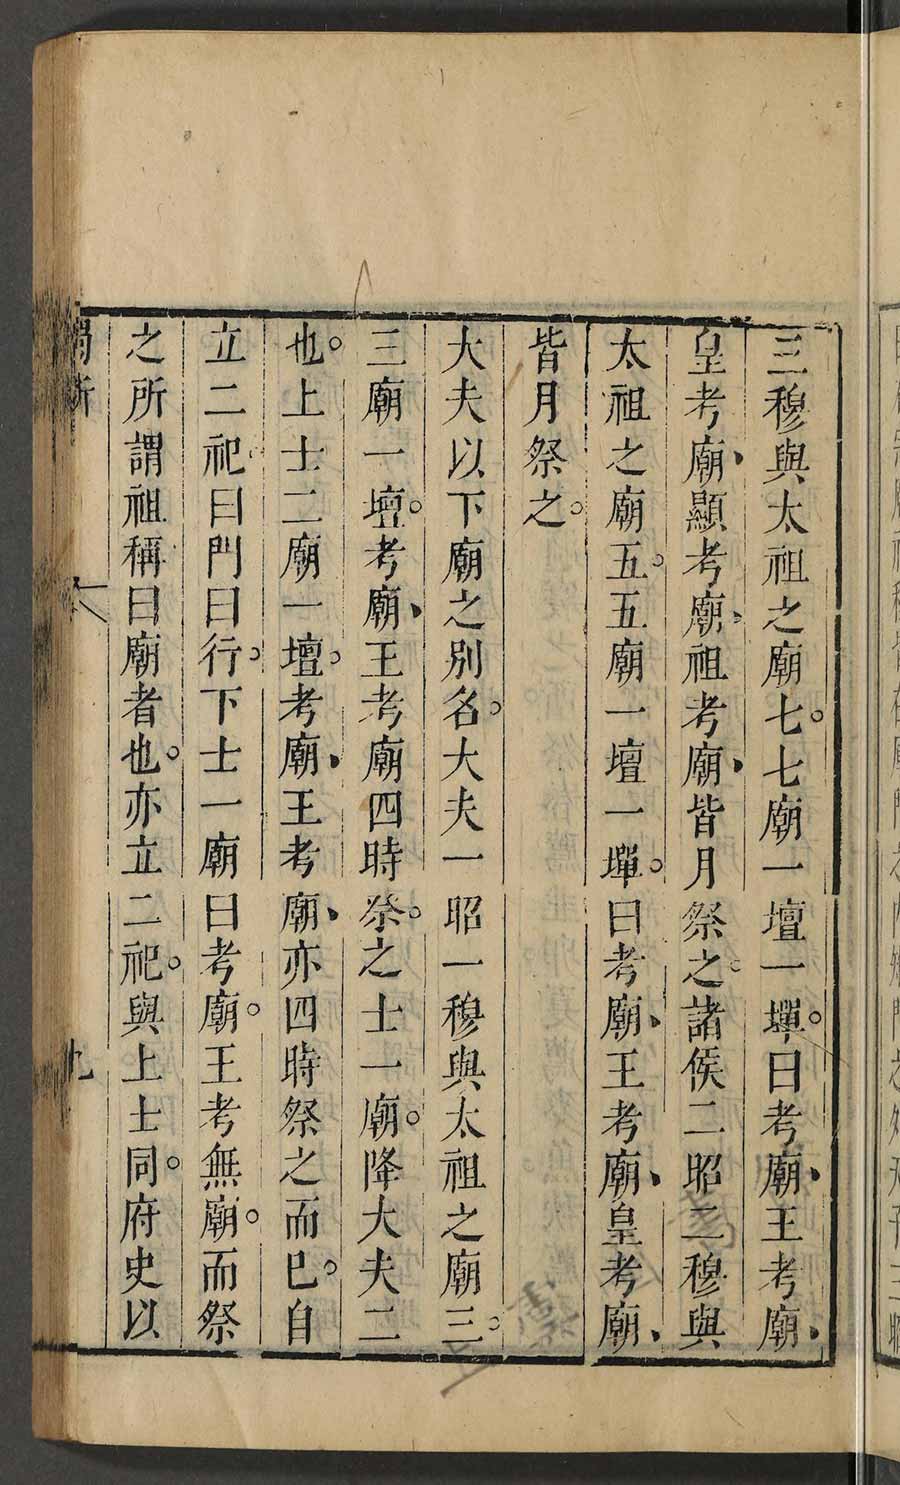 三穆與太祖之廟七。七廟一壇一墠。曰考廟、王考廟、
皇考廟、顯考廟、祖考廟、皆月祭之。諸侯二昭二穆與
太祖之廟五。五廟一壇一墠。曰考廟、王考廟、皇考廟、
皆月祭之。
大夫以下廟之別名。大夫一昭一穆與太祖之廟三。
三廟一壇。考廟、王考廟四時祭。之士一廟。降大夫二
也。上士二廟一壇。考廟、王考廟、亦四時祭之而已。自
立二祀曰門曰行。下士一廟曰考廟。王考無廟。而祭
之所謂祖稱曰廟者也。亦立二祀。與上士同。府史以
獨斷
九